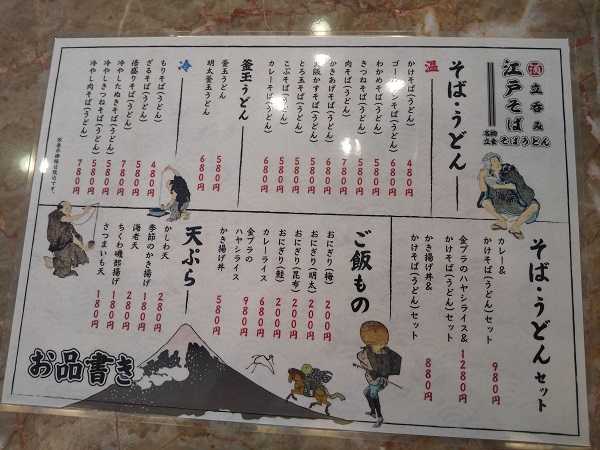 酒 立呑み
江戸そば
名物
立食 そばうどん
そば・うどん
温
かけそば(うどん) 480円
わかめそば(うどん) 580円
きつねそば(うどん) 580円
肉そば(うどん) 780円
かきあげそば(うどん) 680円
大阪かすそば(うどん) 580円
とろ玉そば(うどん) 580円
こぶそば(うどん) 580円
カレーそば(うどん) 680円
釜玉うどん
釜玉うどん 580円
明太釜玉うどん 680円
冷
もりそば(うどん) 480円
ざるそば(うどん) 580円
倍盛りそば(うどん) 780円
冷やしたぬきそば(うどん) 580円
冷やしきつねそば(うどん) 580円
冷やし肉そば(うどん) 780円
そば・うどんセット
カレー&
かけそば(うどん)セット 980円
金プラのハヤシライス&
かけそば(うどん)セット 1280円
かき揚げ丼&
かけそば(うどん)セット 880円
ご飯もの
おにぎり(梅) 200円
おにぎり(明太) 200円
おにぎり(昆布) 200円
おにぎり(鮭) 200円
カレーライス 680円
金プラの
ハヤシライス 980円
かき揚げ丼 580円
天ぷら
かしわ天 280円
季節のかき揚げ 180円
海老天 280円
ちくわ磯部揚げ 180円
さつまいも天 180円
お品書き